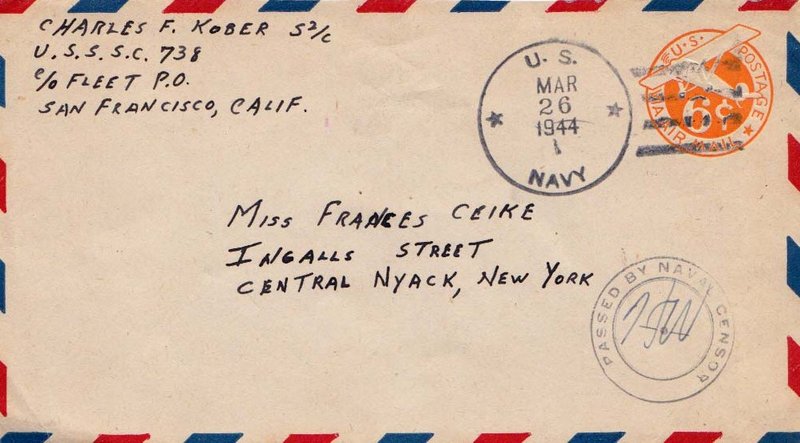 CHARLES F. KOBER S2/C
U.S.S. S.C. 738
C/O FLEET P.O.
SAN FRANCISCO, CALIF.
U.S.
MAR
26
1944
1
NAVY
U.S. POSTAGE
6¢
AIR MAIL
MISS FRANCES CEIKE
INGALLS STREET
CENTRAL NYACK, NEW YORK
PASSED BY NAVAL CENSOR